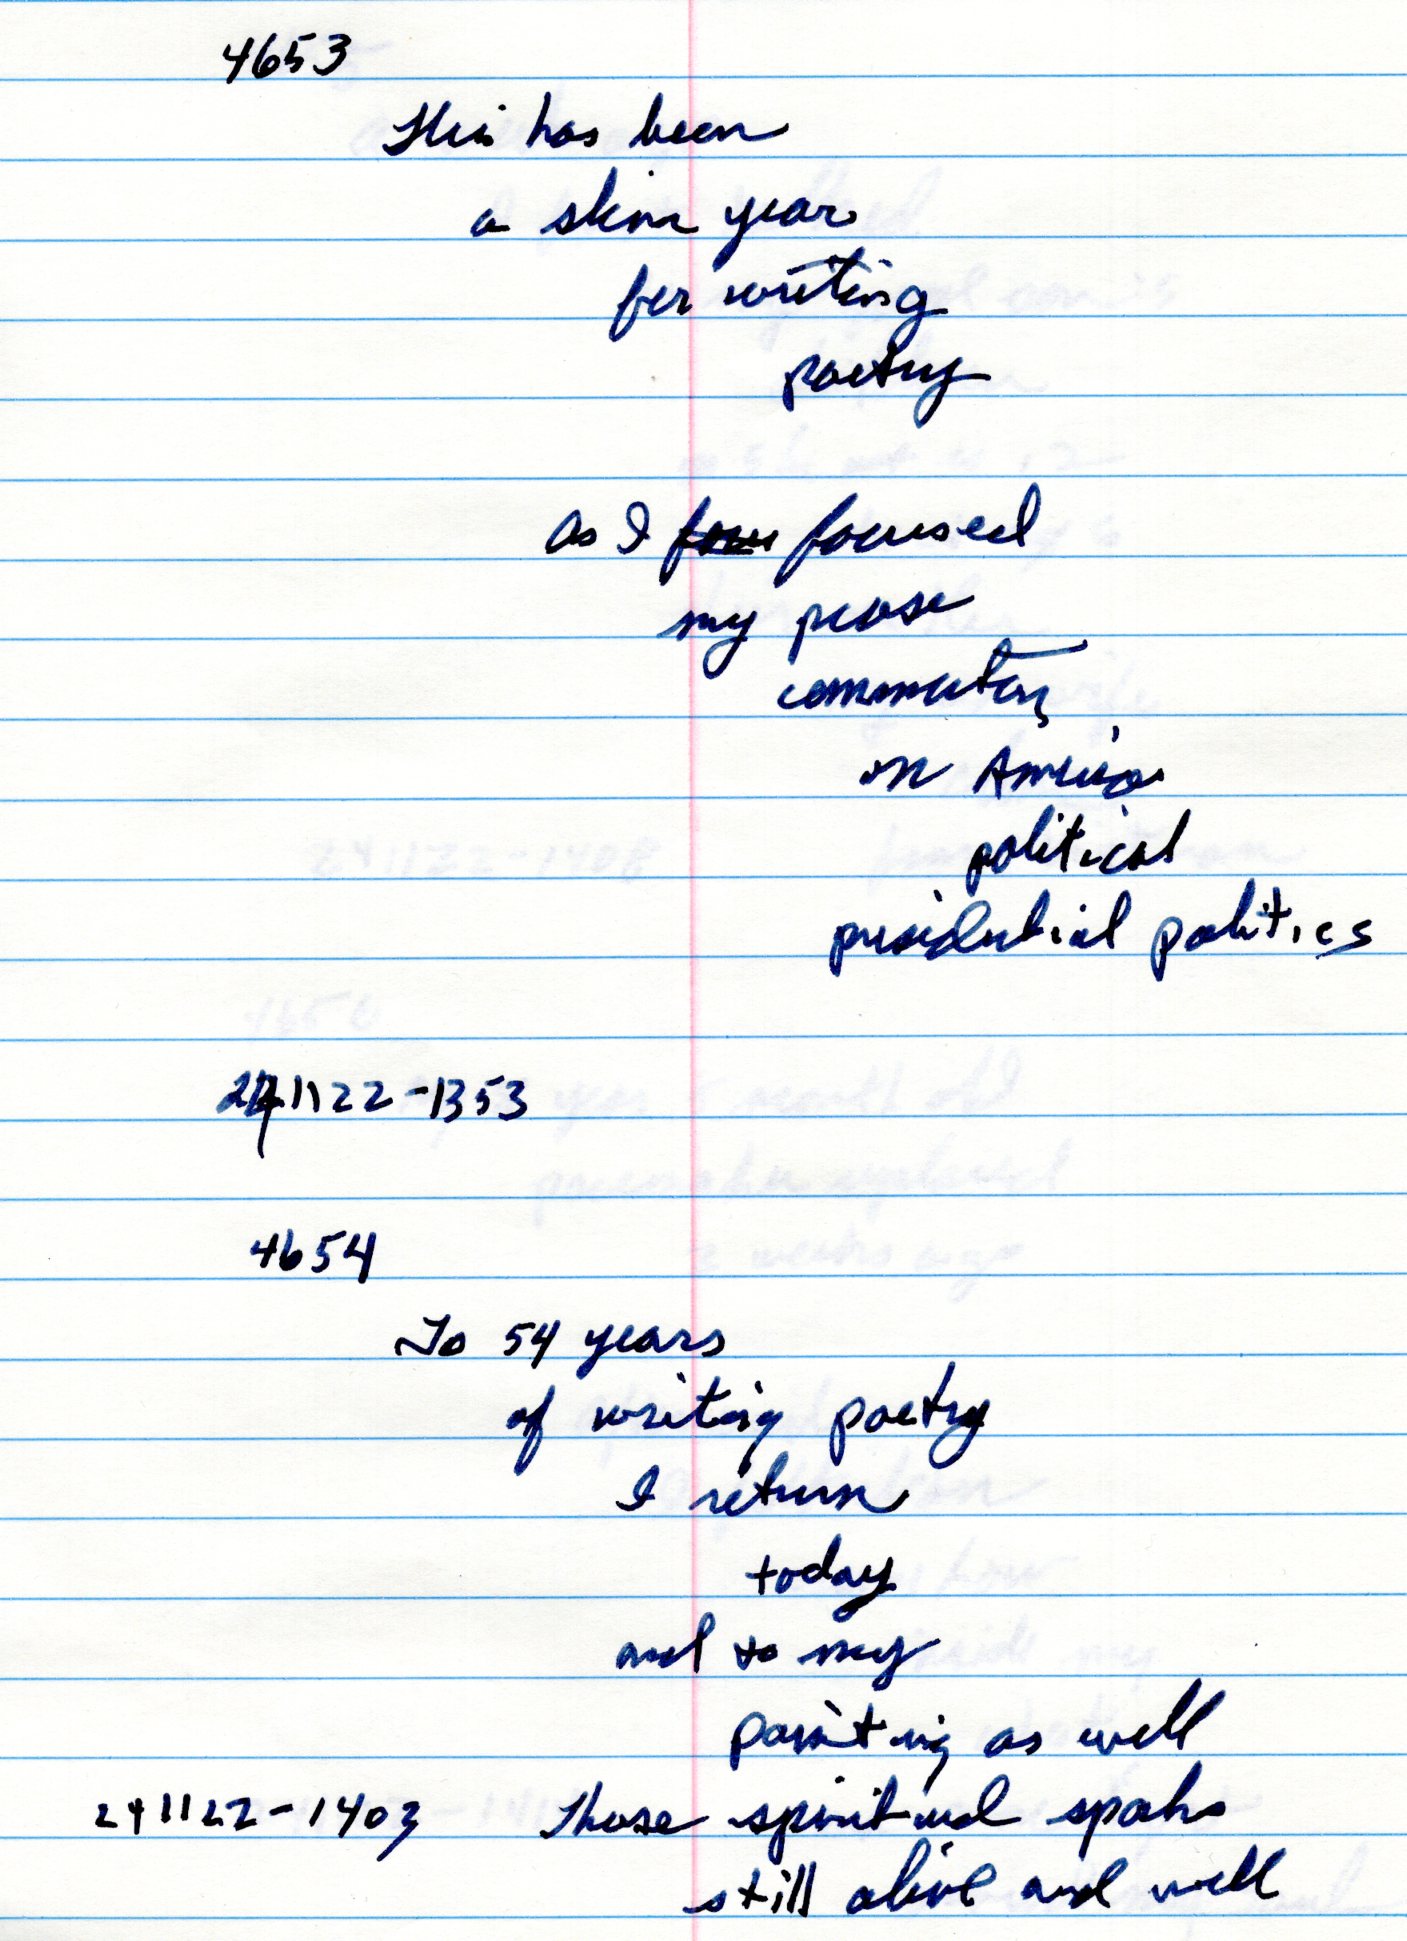 4653
This has been
a slim year
for writing
poetry
as I focused
my prose
commentary
on America
political
presidential politics
241122-1353
4654
To 54 years
of writing poetry
I return
today
and to my
painting as well
241122-1403 Those spiritual sparks
still alive and well